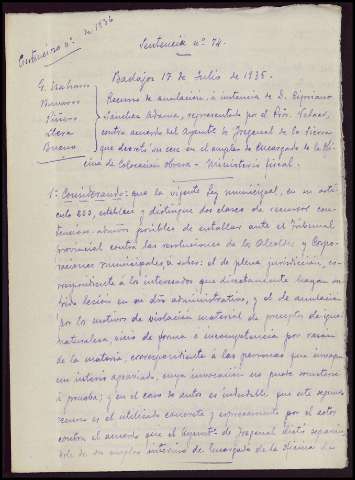 Contencioso nº de 1936
Sentencia nº 74.
Badajoz 17 de Julio de 1935.
Recurso de anulación, a instancia de D. Cipriano
Sanchez Adame, representado por el Pror.
contra acuerdo del Ayuntº de Fregenal de la Sierra
que decretó su cese en el empleo de encargado de la Ofi-
cina de Colocación obrera - Ministerio fiscal.
Bueno
1º Considerando: que la vigente ley municipal, en su artí-
culo 223, establece y distingue dos clases de recursos con-
tencioso-admvos posibles de entablar ante el Tribunal
Provincial contra las resoluciones de los Alcaldes y Corpo-
raciones municipales, a saber: el de plena jurisdicción, co-
rrespondiente a los interesados que directamente hayan su-
frido lesión en su dro administrativo, y el de anulación
por los motivos de violación material de preceptos de igual
naturaleza, vicio de forma e incompetencia por razón
de la materia, correspondiente a las personas que invoquen
un interés agraviado, cuya invocación no puede someterse
a prueba; y en el caso de autos es indudable que este segundo
recurso es el utilizado concreta y expresamente por el actor
contra el acuerdo que el Ayuntº de Fregenal dictó separan-
dole de su empleo interino de Encargado de la Oficina de